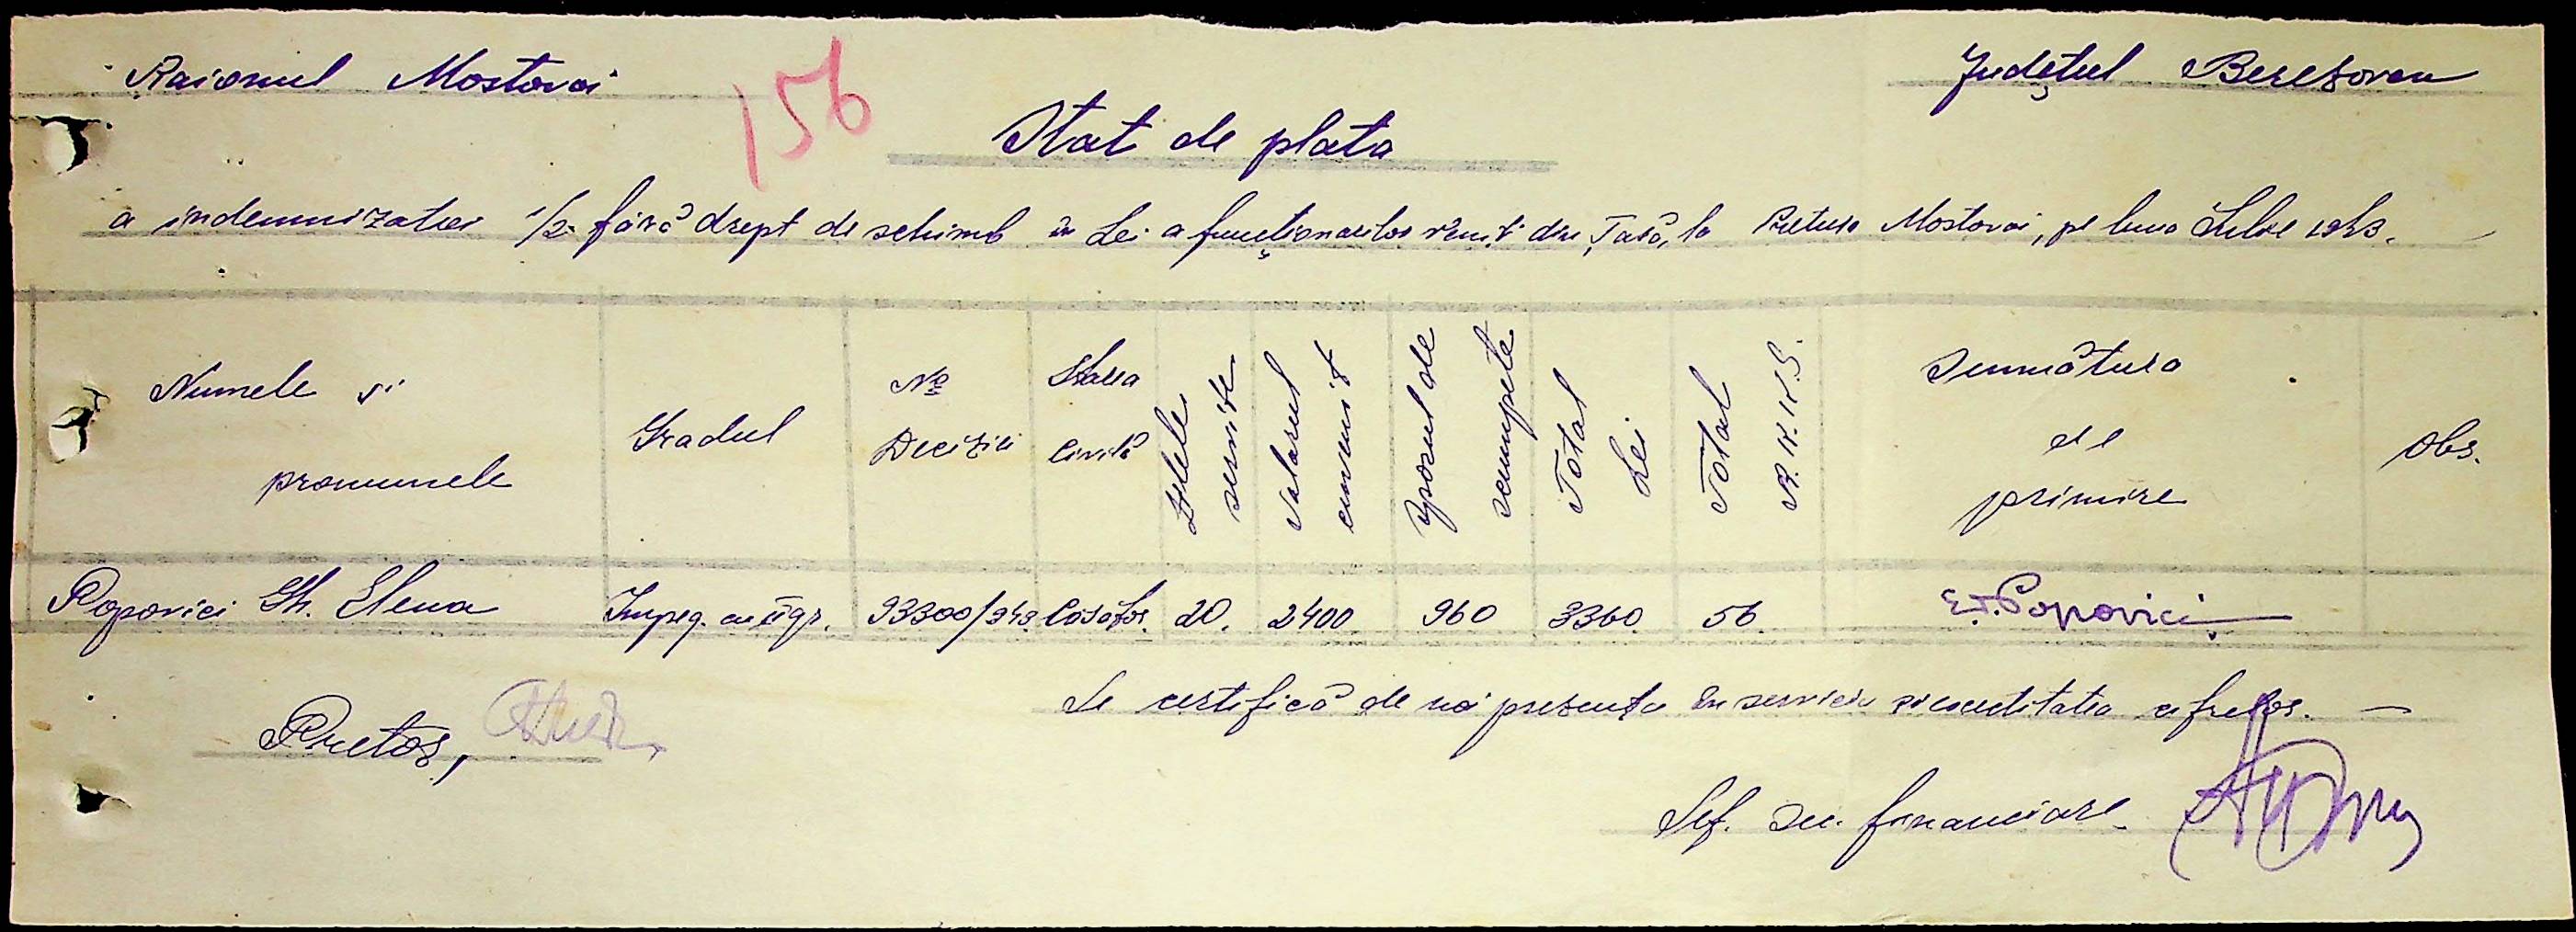 Raionul Mostovoi
Județul Berezovca
156
Stat de plata
a indemnizatiei 1/2 fără drept de schimb in Lei a funcționarilor veniți din Țară, la Pretura Mostovoi, pe luna Iulie 1943.
Numele si pronumele
Gradul
No Decizii
Starea Civilă
Zilele servite
Salarul cuvenit
Sporul de scumpete
Total Lei
Total R.K.K.S.
Semnătura de primire
Obs.
Popovici Gh. Elena Impeg. cu ugr. 93300/943 Căsător. 20. 2400 960 3360. 56. E.T. Popovici
Se certifică de noi prezența in serviciu si exactitatea cifrelor. —
Pretor,
Sef. Ser. financiare